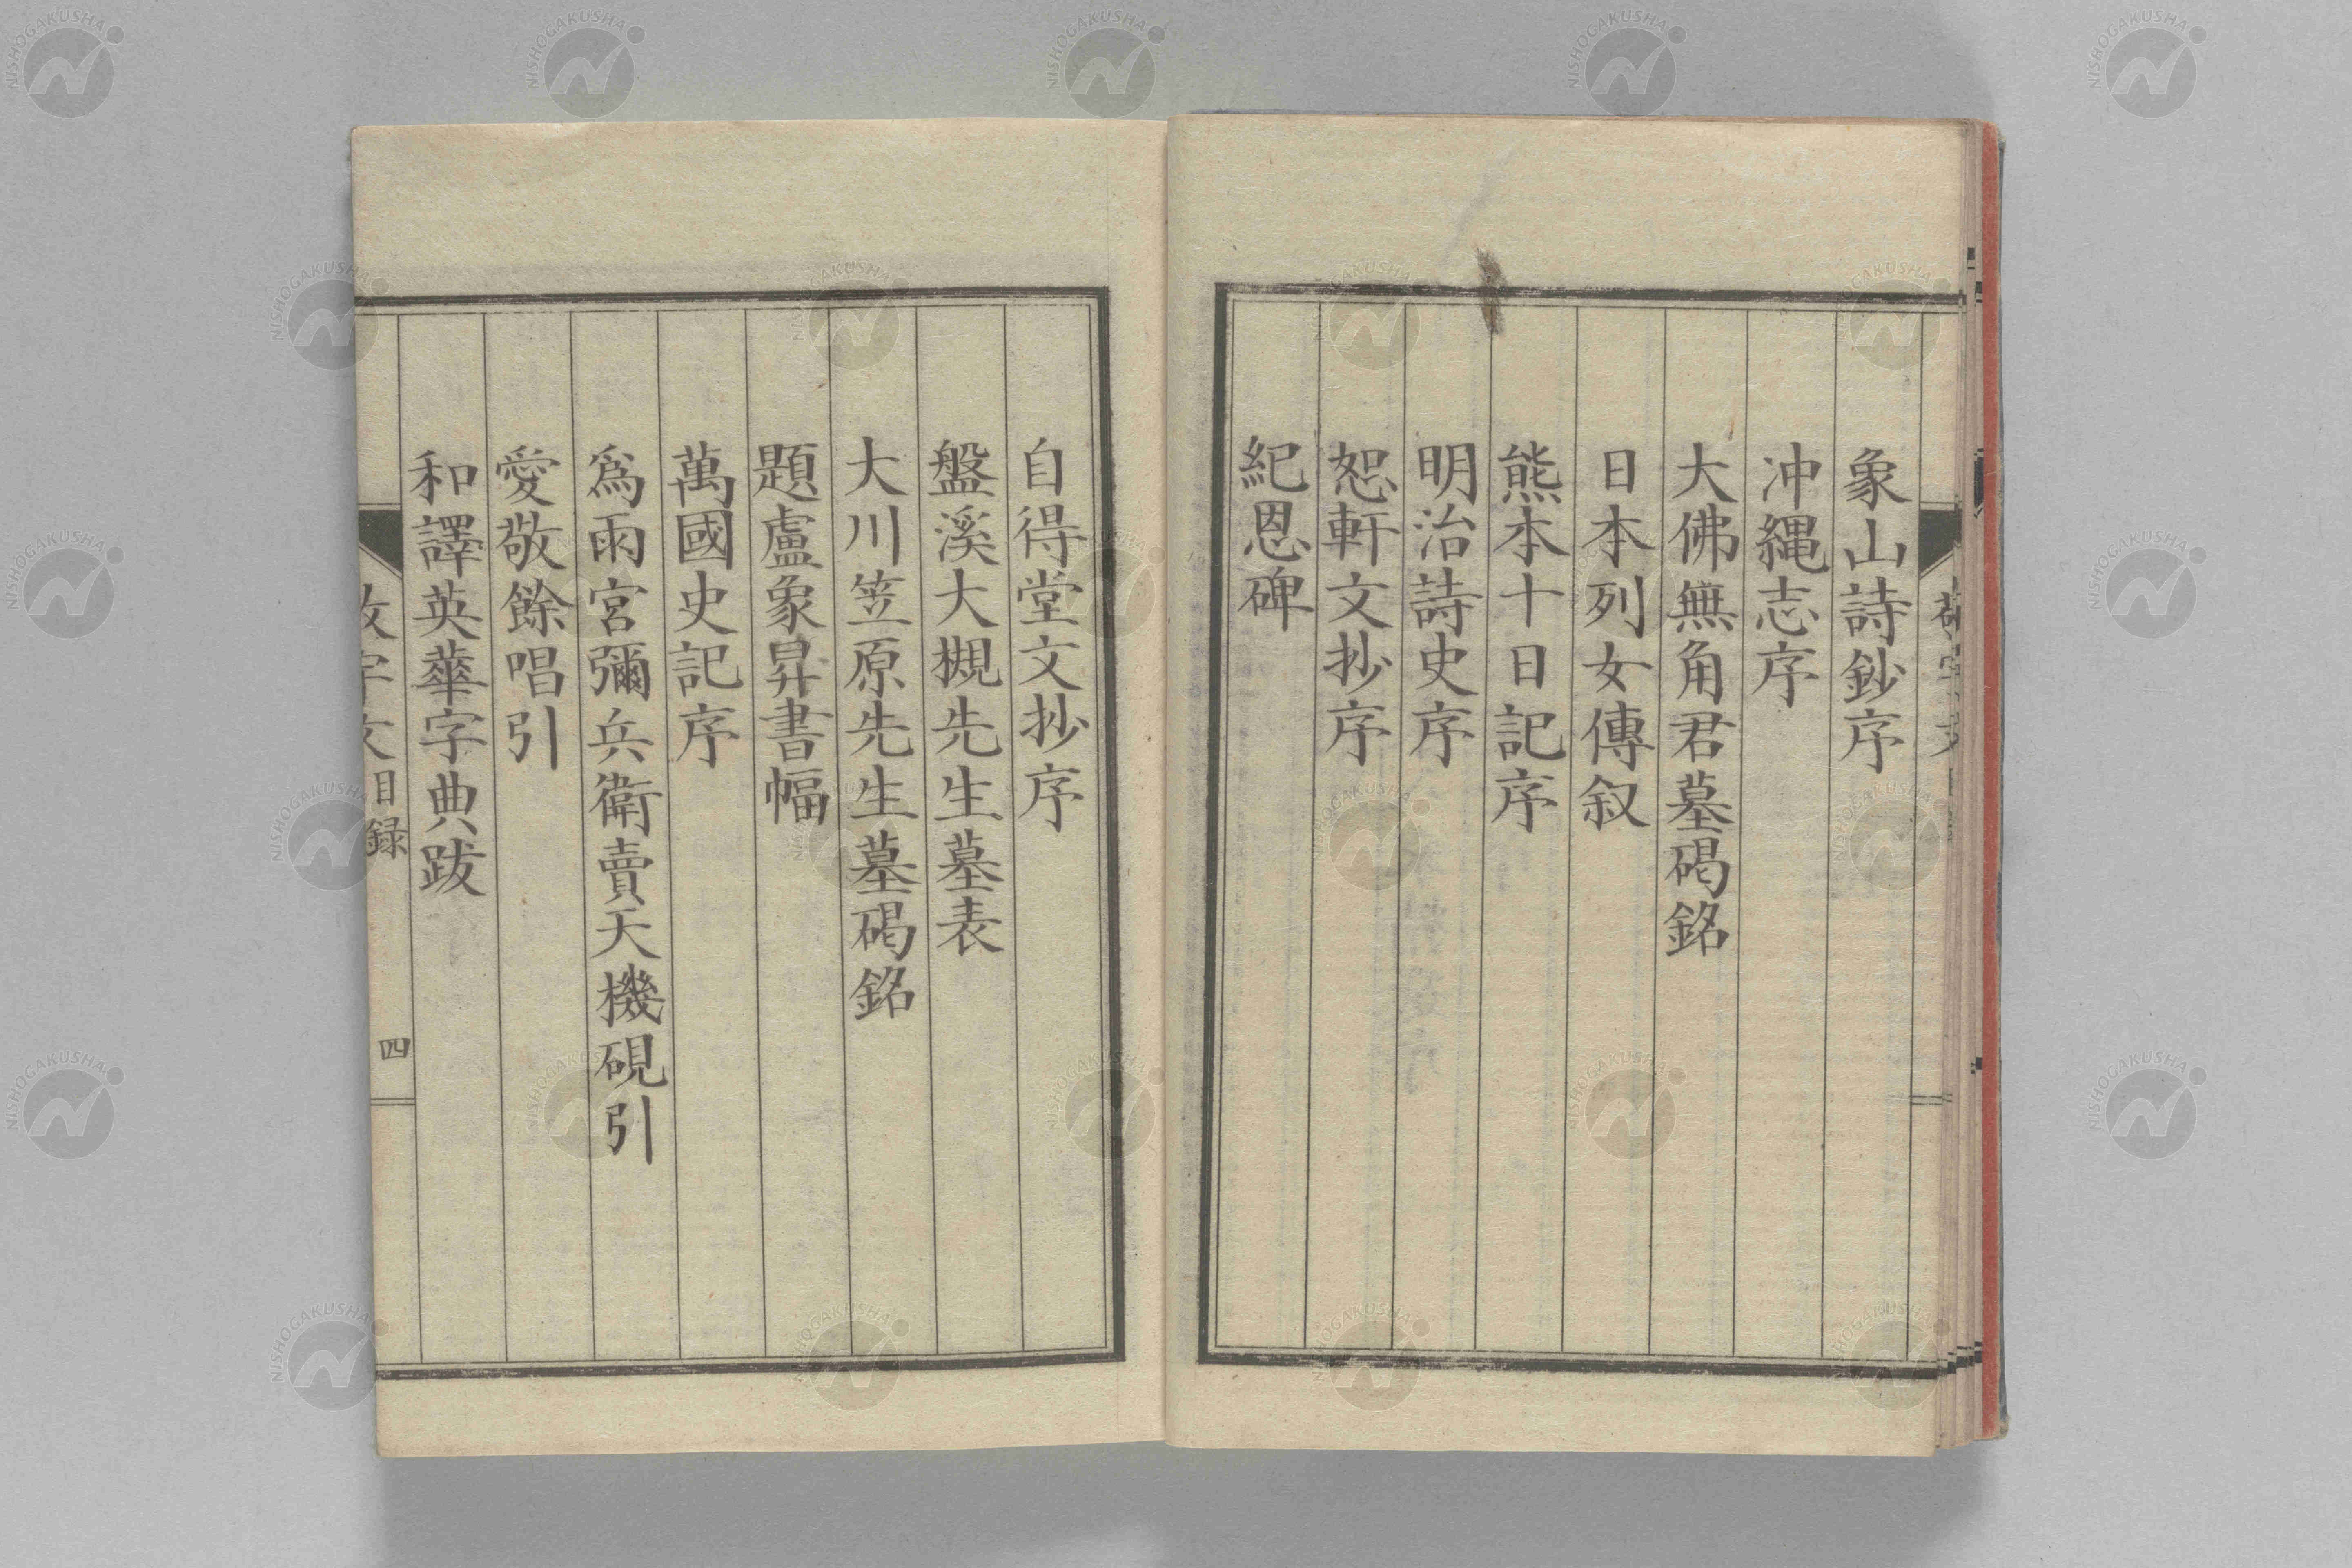 象山詩鈔序
冲縄志序
大佛無角君墓碣銘
日本列女傳叙
熊本十日記序
明治詩史序
恕軒文抄序
紀恩碑
自得堂文抄序
盤溪大槻先生墓表
大川笠原先生墓碣銘
題盧象昇書幅
萬國史記序
爲雨宮彌兵衛賣天機硯引
愛敬餘唱引
和譯英華字典跋
字文目録
四
NISHOGAKUSHA